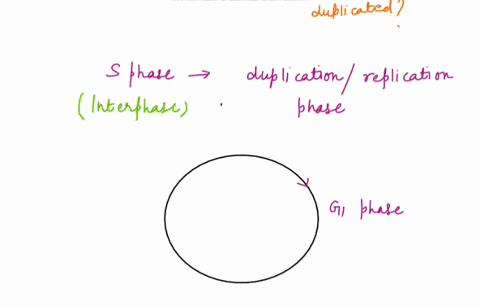 duplicated?
S phase → duplication/replication
(Interphase) phase
G1 phase